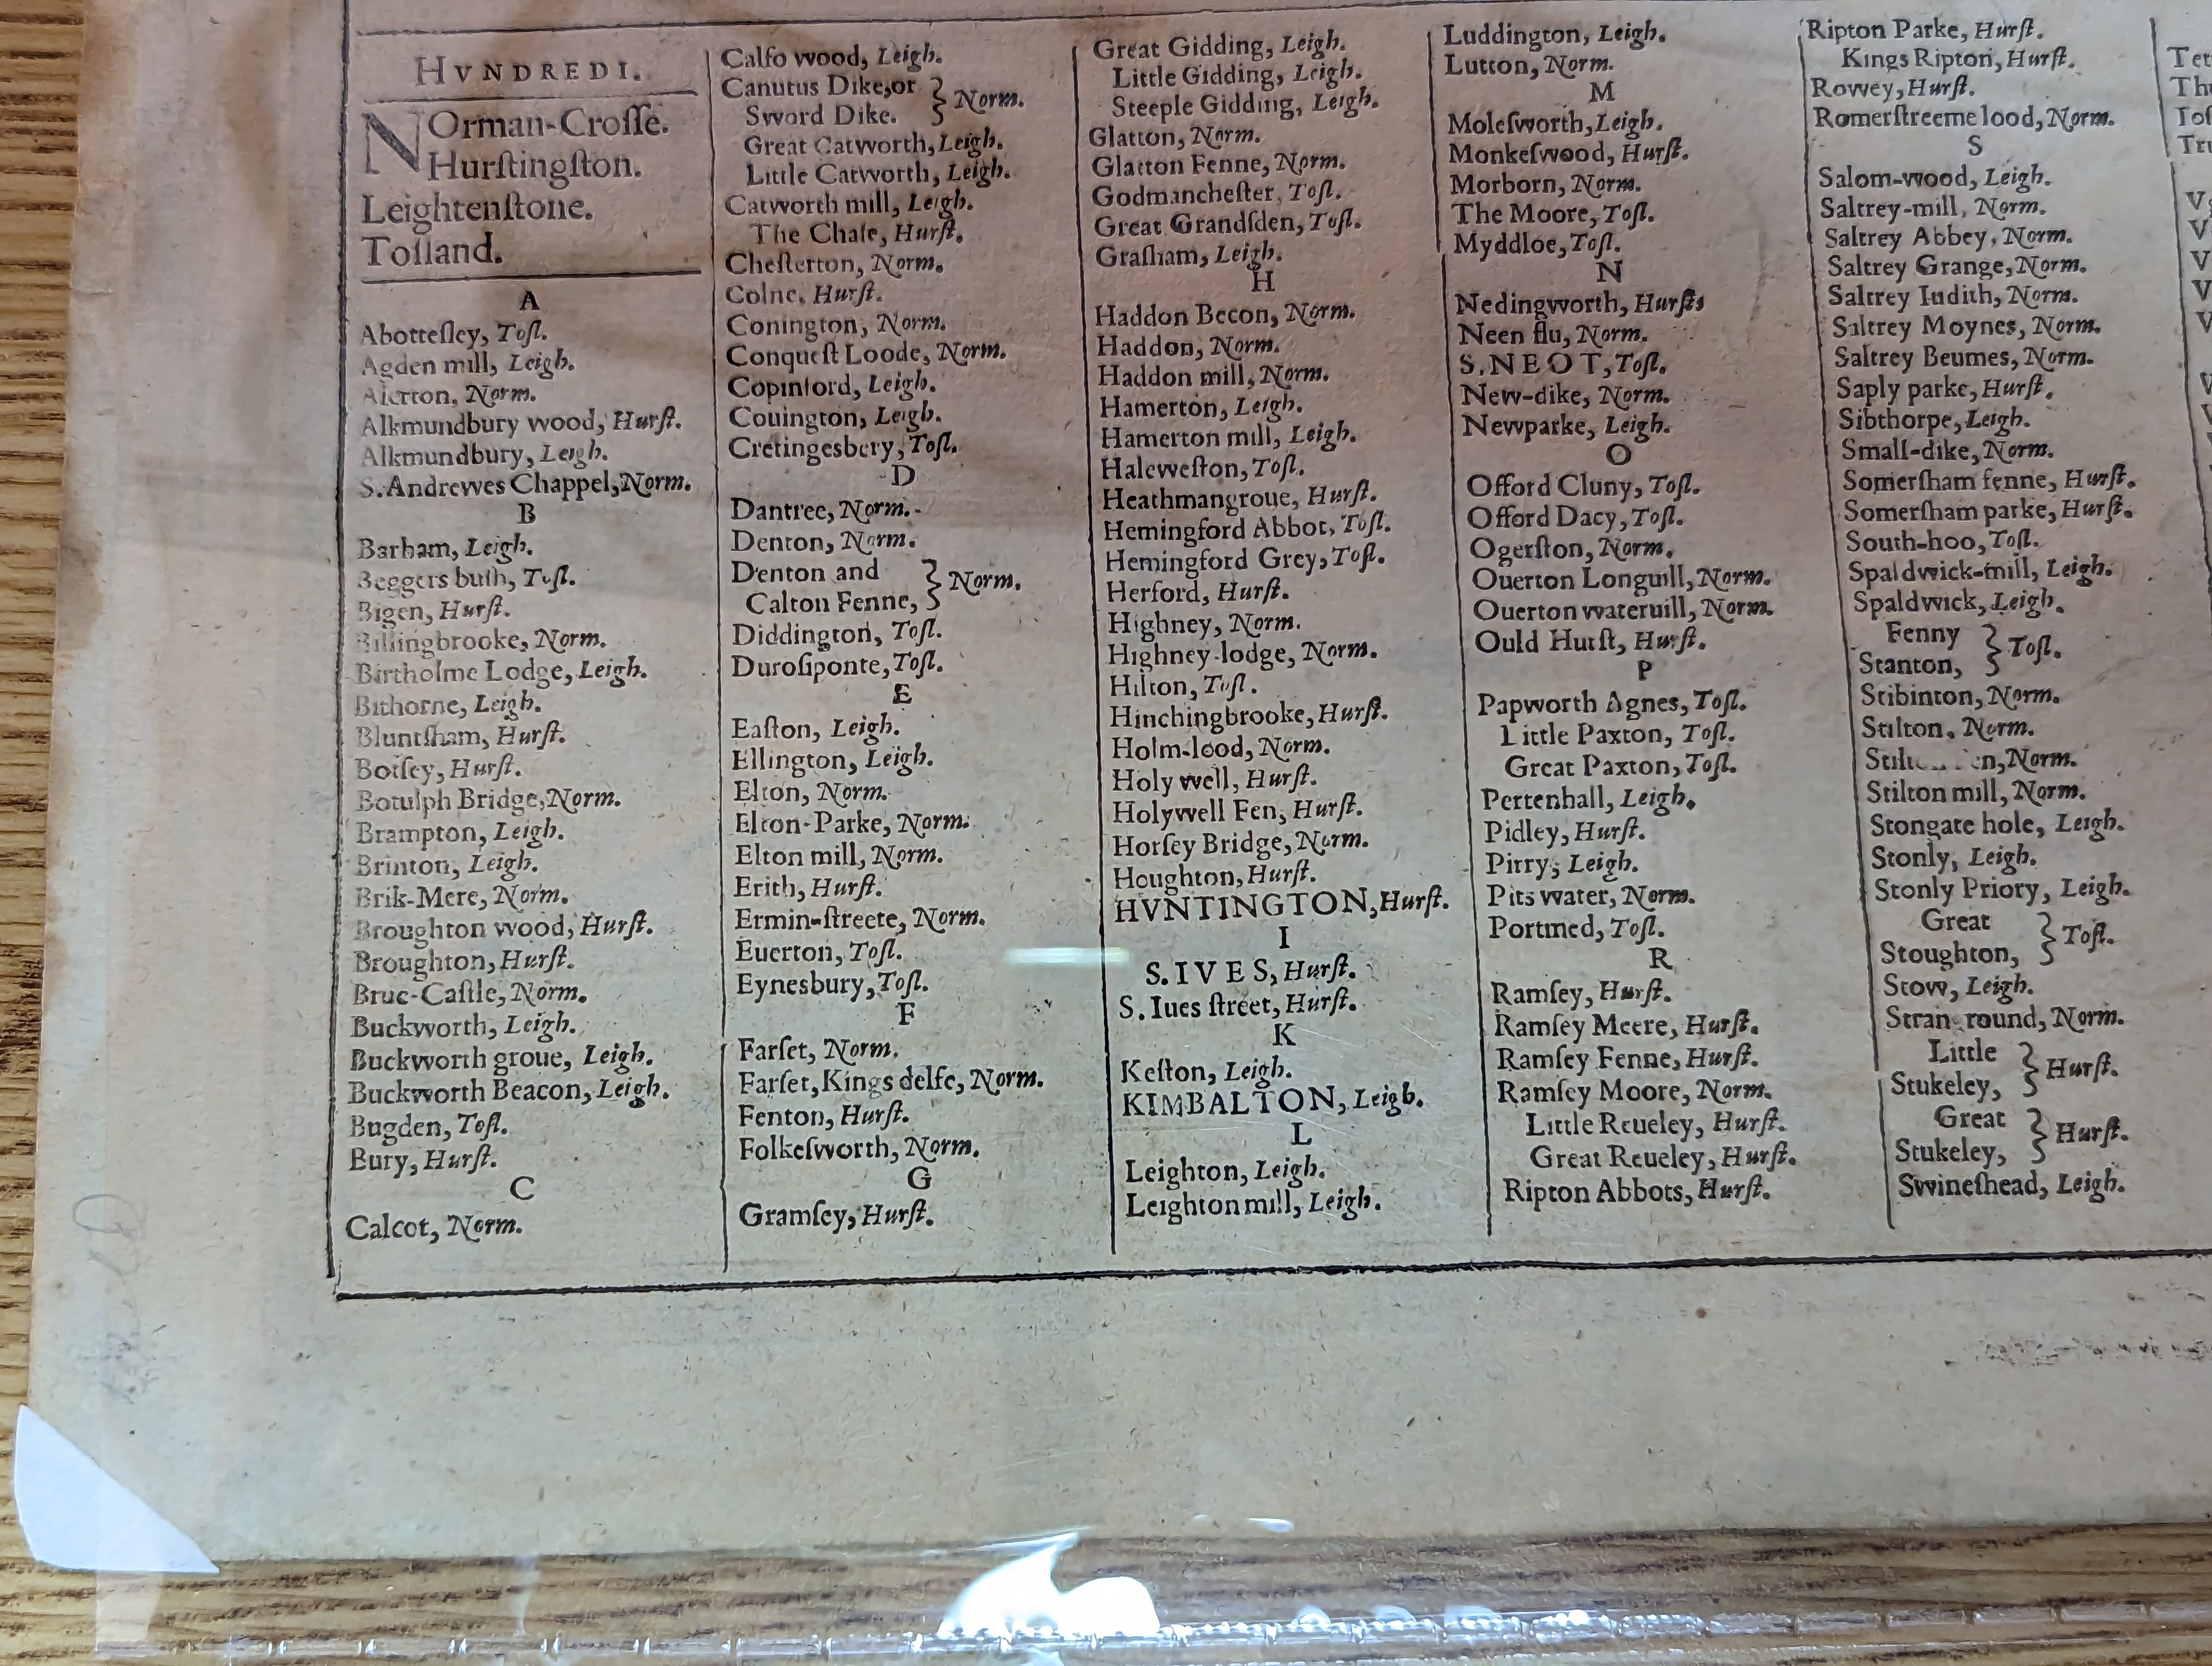 HVNDREDI.
NOrman-Croſſe.
Hurſtingſton.
Leightenſtone.
Toſland.
A
Abotteſley, Toſl.
Agden mill, Leigh.
Alerton, Norm.
Alkmundbury wood, Hurſt.
Alkmundbury, Leigh.
S. Andrewes Chappel, Norm.
B
Barham, Leigh.
Beggers buſh, Toſl.
Bigen, Hurſt.
Billingbrooke, Norm.
Birtholme Lodge, Leigh.
Bithorne, Leigh.
Bluntſham, Hurſt.
Botſey, Hurſt.
Botulph Bridge, Norm.
Brampton, Leigh.
Brinton, Leigh.
Brik-Mere, Norm.
Broughton wood, Hurſt.
Broughton, Hurſt.
Bruc-Caſtle, Norm.
Buckworth, Leigh.
Buckworth groue, Leigh.
Buckworth Beacon, Leigh.
Bugden, Toſl.
Bury, Hurſt.
C
Calcot, Norm.
Calfo wood, Leigh.
Canutus Dike, or
Sword Dike. } Norm.
Great Catworth, Leigh.
Little Catworth, Leigh.
Catworth mill, Leigh.
The Chaſe, Hurſt.
Cheſterton, Norm.
Colne, Hurſt.
Conington, Norm.
Conqueſt Loode, Norm.
Copinford, Leigh.
Couington, Leigh.
Cretingesbery, Toſl.
D
Dantree, Norm.
Denton, Norm.
Denton and
Calton Fenne, } Norm.
Diddington, Toſl.
Duroſiponte, Toſl.
E
Eaſton, Leigh.
Ellington, Leigh.
Elton, Norm.
Elton-Parke, Norm.
Elton mill, Norm.
Erith, Hurſt.
Ermin-ſtreete, Norm.
Euerton, Toſl.
Eynesbury, Toſl.
F
Farſet, Norm.
Farſet, Kings delfe, Norm.
Fenton, Hurſt.
Folkeſworth, Norm.
G
Gramſey, Hurſt.
Great Gidding, Leigh.
Little Gidding, Leigh.
Steeple Gidding, Leigh.
Glatton, Norm.
Glatton Fenne, Norm.
Godmancheſter, Toſl.
Great Grandſden, Toſl.
Graſham, Leigh.
H
Haddon Becon, Norm.
Haddon, Norm.
Haddon mill, Norm.
Hamerton, Leigh.
Hamerton mill, Leigh.
Haleweſton, Toſl.
Heathmangroue, Hurſt.
Hemingford Abbot, Toſl.
Hemingford Grey, Toſl.
Herford, Hurſt.
Highney, Norm.
Highney-lodge, Norm.
Hilton, Toſl.
Hinchingbrooke, Hurſt.
Holm-lood, Norm.
Holy well, Hurſt.
Holywell Fen, Hurſt.
Horſey Bridge, Norm.
Houghton, Hurſt.
HVNTINGTON, Hurſt.
I
S. IVES, Hurſt.
S. Iues ſtreet, Hurſt.
K
Keſton, Leigh.
KIMBALTON, Leigh.
L
Leighton, Leigh.
Leighton mill, Leigh.
Luddington, Leigh.
Lutton, Norm.
M
Moleſworth, Leigh.
Monkeſwood, Hurſt.
Morborn, Norm.
The Moore, Toſl.
Myddloe, Toſl.
N
Nedingworth, Hurſt
Neen flu, Norm.
S. NEOT, Toſl.
New-dike, Norm.
Newparke, Leigh.
O
Offord Cluny, Toſl.
Offord Dacy, Toſl.
Ogerſton, Norm.
Ouerton Longuill, Norm.
Ouerton wateruill, Norm.
Ould Hurſt, Hurſt.
P
Papworth Agnes, Toſl.
Little Paxton, Toſl.
Great Paxton, Toſl.
Pertenhall, Leigh.
Pidley, Hurſt.
Pirry, Leigh.
Pits water, Norm.
Portmed, Toſl.
R
Ramſey, Hurſt.
Ramſey Meere, Hurſt.
Ramſey Fenne, Hurſt.
Ramſey Moore, Norm.
Little Reueley, Hurſt.
Great Reueley, Hurſt.
Ripton Abbots, Hurſt.
Ripton Parke, Hurſt.
Kings Ripton, Hurſt.
Rowey, Hurſt.
Romerſtreeme lood, Norm.
S
Salom-wood, Leigh.
Saltrey-mill, Norm.
Saltrey Abbey, Norm.
Saltrey Grange, Norm.
Saltrey Iudith, Norm.
Saltrey Moynes, Norm.
Saltrey Beumes, Norm.
Saply parke, Hurſt.
Sibthorpe, Leigh.
Small-dike, Norm.
Somerſham fenne, Hurſt.
Somerſham parke, Hurſt.
South-hoo, Toſl.
Spaldwick-mill, Leigh.
Spaldwick, Leigh.
Fenny
Stanton, } Toſl.
Stibinton, Norm.
Stilton, Norm.
Norm.
Stilton mill, Norm.
Stongate hole, Leigh.
Stonly, Leigh.
Stonly Priory, Leigh.
Great
Stoughton, } Toſl.
Stow, Leigh.
Norm.
Little
Stukeley, } Hurſt.
Great
Stukeley, } Hurſt.
Swineſhead, Leigh.